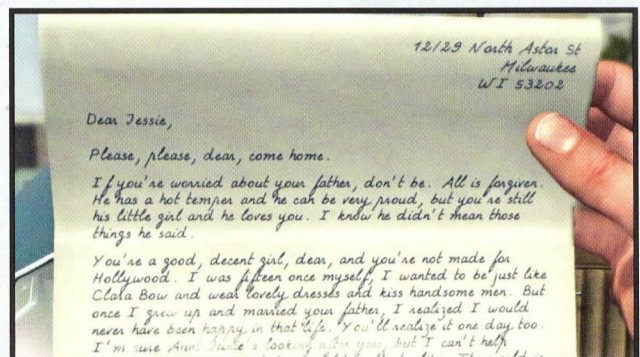 12/29 North Astor St
Milwaukee
WI 53202
Dear Jessie,
Please, please, dear, come home.
If you're worried about your father, don't be. All is forgiven.
He has a hot temper and he can be very proud, but you're still
his little girl and he loves you. I know he didn't mean those
things he said.
You're a good, decent girl, dear, and you're not made for
Hollywood. I was fifteen once myself, I wanted to be just like
Clara Bow and wear lovely dresses and kiss handsome men. But
once I grew up and married your father, I realized I would
never have been happy in that life. You'll realize it one day too.
I'm sure Aunt looking after you, but I can't help